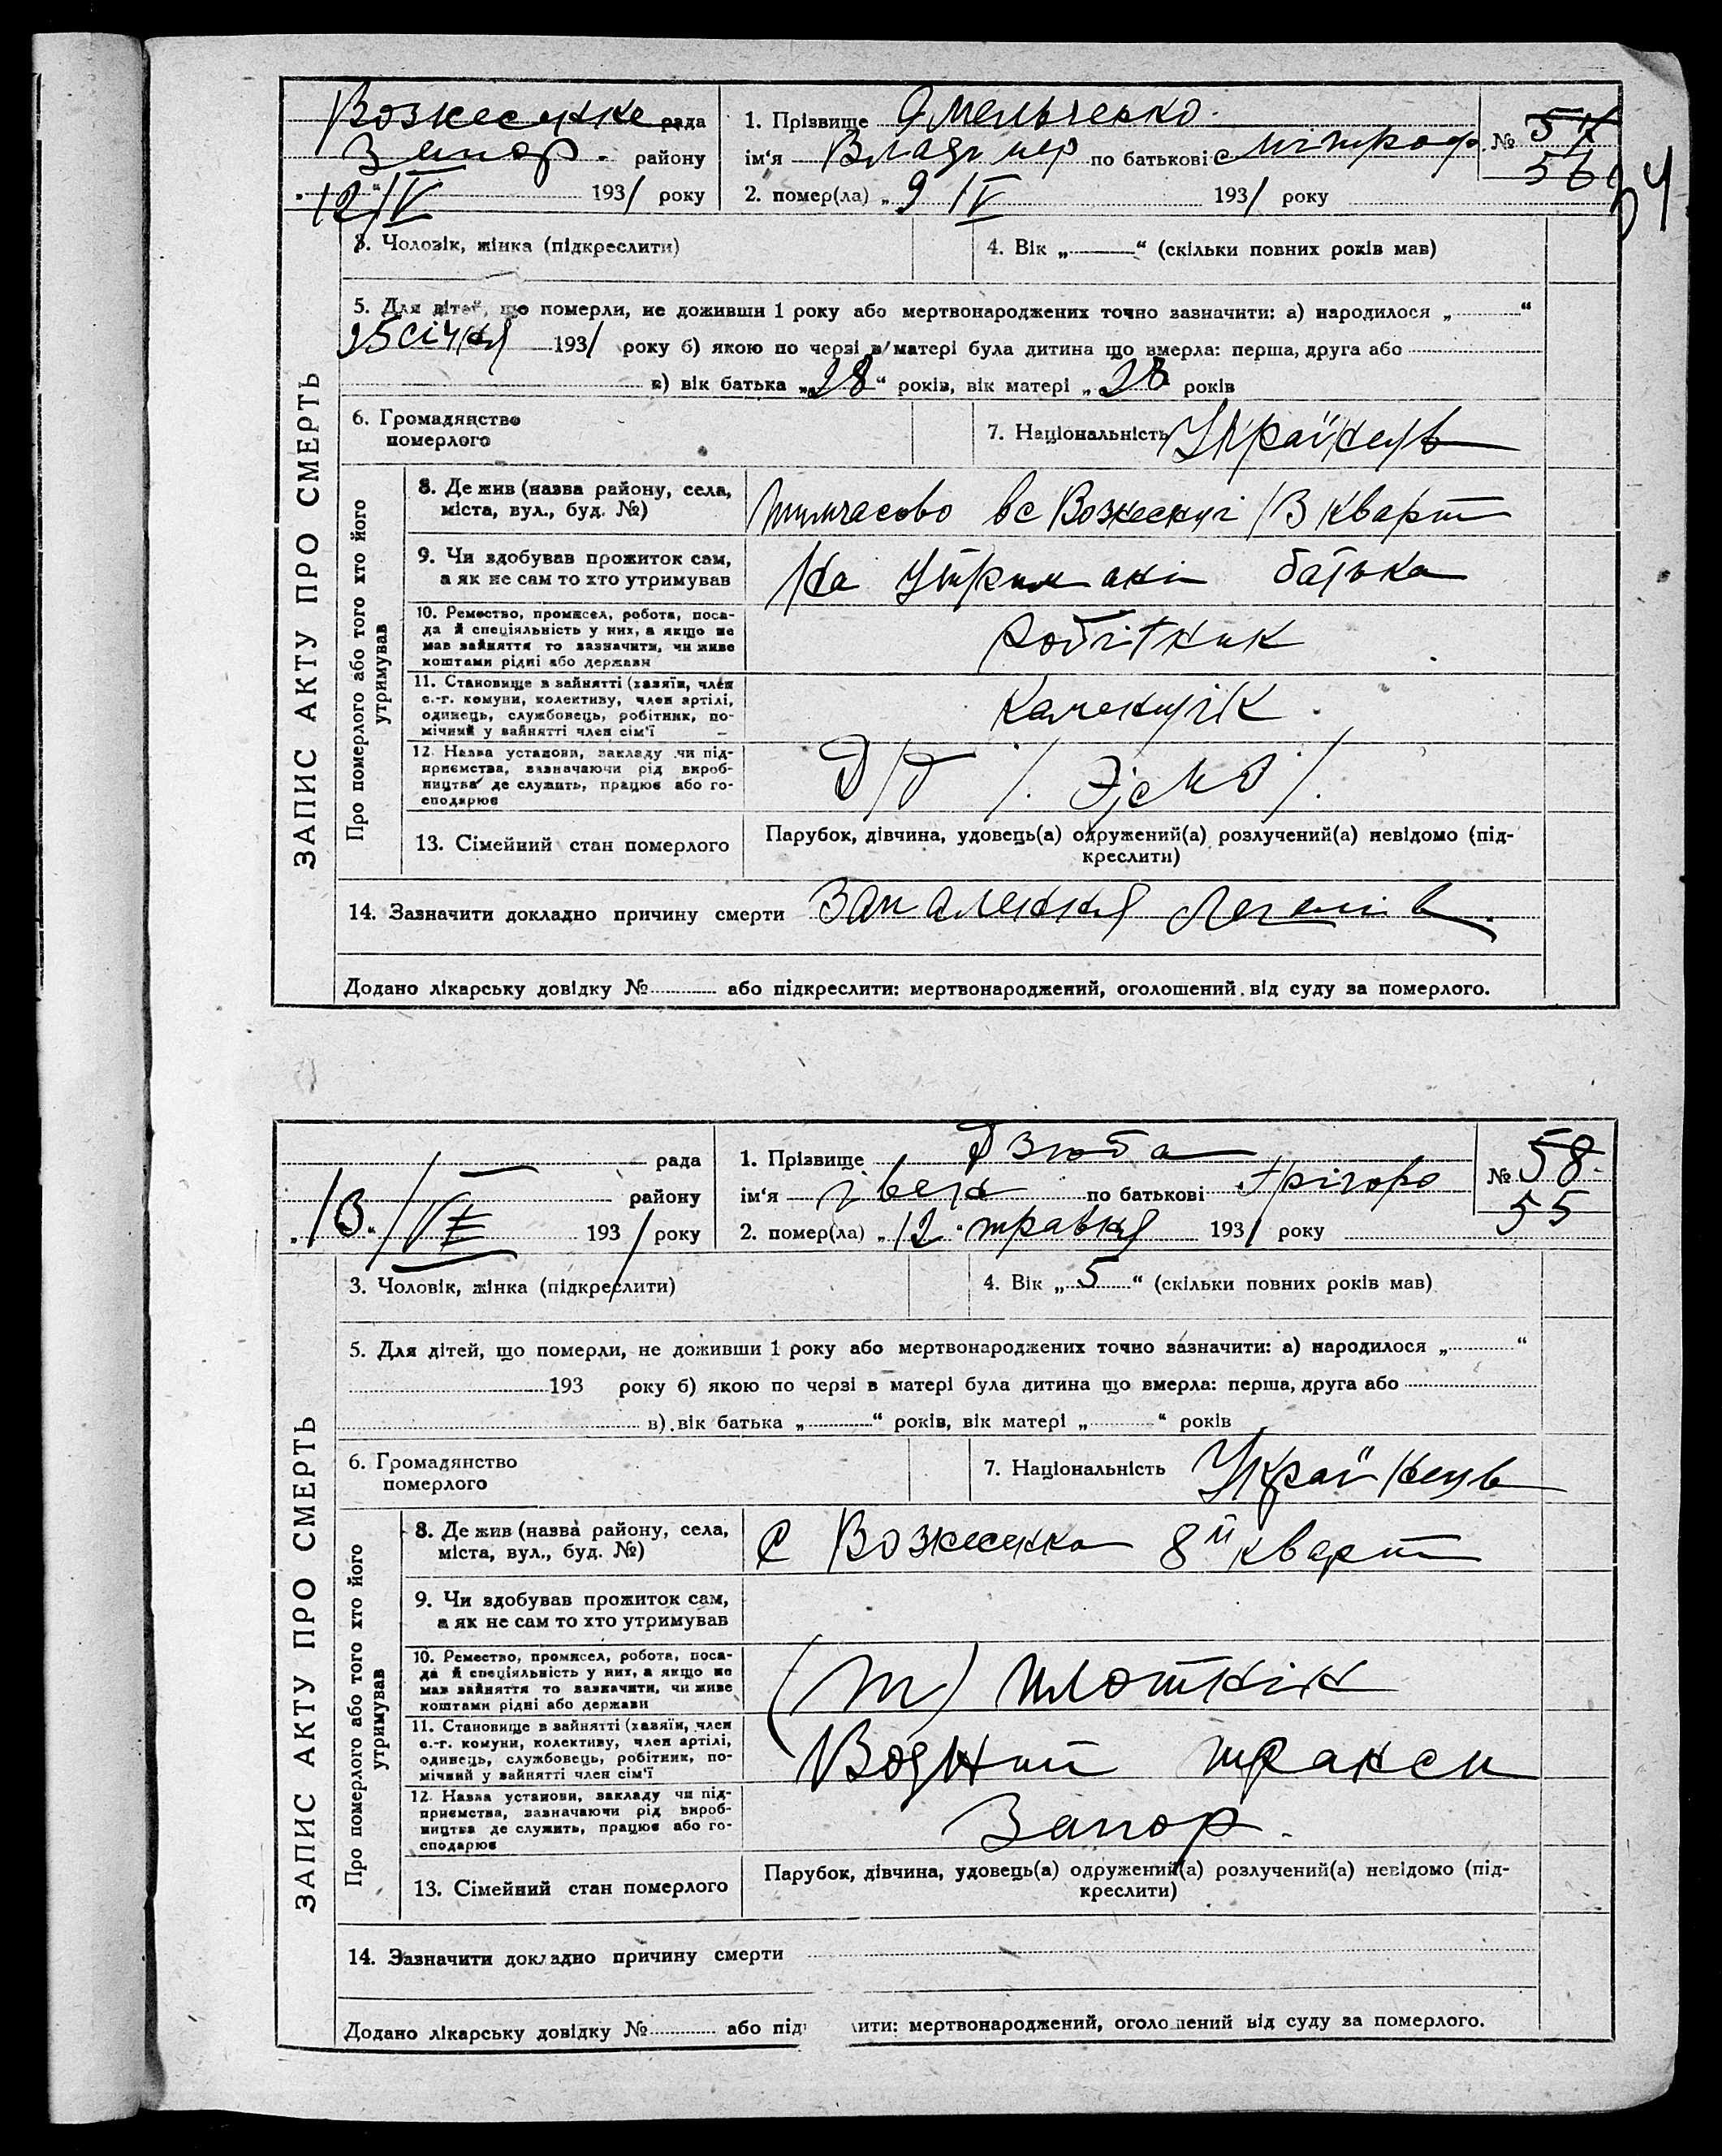 Вознесенке рада
Запор. району
"12/IV 1931 року
1. Прізвище Омельченко
ім'я Владімер по батькові Мітроф.
2. помер(ла) „9 IV 1931 року
№ 57
56
54
3. Чоловік, жінка (підкреслити)
4. Вік „ “ (скільки повних років мав)
5. Для дітей, що померли, не доживши 1 року або мертвонароджених точно зазначити: а) народилося „ “
25 січня 1931 року б) якою по черзі в матері була дитина що вмерла: перша, друга або
в) вік батька „28“ років, вік матері „28 років
6. Громадянство
померлого
7. Національність Українець
ЗАПИС АКТУ ПРО СМЕРТЬ
Про померлого або того хто його
утримував
8. Де жив (назва району, села,
міста, вул., буд. №)
тимчасово в с Вознесенці 13 кварт
9. Чи здобував прожиток сам,
а як не сам то хто утримував
На утриманні батька
10. Ремество, промисел, робота, поса-
да й спеціяльність у них, а якщо не
мав зайняття то зазначити, чи живе
коштами рідні або держави
робітник
11. Становище в зайнятті (хазяїн, член
с.-г. комуни, колективу, член артілі,
одинець, службовець, робітник, по-
мічний у зайнятті член сім'ї
каменщік
12. Назва установи, закладу чи під-
приємства, зазначаючи рід вироб-
ництва де служить, працює або го-
сподарює
13. Сімейний стан померлого
Парубок, дівчина, удовець(а) одружений(а) розлучений(а) невідомо (під-
креслити)
14. Зазначити докладно причину смерти Запалення легенів
Додано лікарську довідку № або підкреслити: мертвонароджений, оголошений від суду за померлого.
рада
району
„13“ /VI 1931 року
1. Прізвище Дзюба
ім'я івер по батькові Грігоро
2. помер(ла) „12“ травня 1931 року
№ 58
55
3. Чоловік, жінка (підкреслити)
4. Вік „5“ (скільки повних років мав)
5. Для дітей, що померли, не доживши 1 року або мертвонароджених точно зазначити: а) народилося „ “
193 року б) якою по черзі в матері була дитина що вмерла: перша, друга або
в) вік батька „ “ років, вік матері „ “ років
6. Громадянство
померлого
7. Національність Українець
ЗАПИС АКТУ ПРО СМЕРТЬ
Про померлого або того хто його
утримував
8. Де жив (назва району, села,
міста, вул., буд. №)
с Вознесенка 8й кварт
9. Чи здобував прожиток сам,
а як не сам то хто утримував
10. Ремество, промисел, робота, поса-
да й спеціяльність у них, а якщо не
мав зайняття то зазначити, чи живе
коштами рідні або держави
(т) плотнік
11. Становище в зайнятті (хазяїн, член
с.-г. комуни, колективу, член артілі,
одинець, службовець, робітник, по-
мічний у зайнятті член сім'ї
Водний транси
12. Назва установи, закладу чи під-
приємства, зазначаючи рід вироб-
ництва де служить, працює або го-
сподарює
Запор.
13. Сімейний стан померлого
Парубок, дівчина, удовець(а) одружений(а) розлучений(а) невідомо (під-
креслити)
14. Зазначити докладно причину смерти
Додано лікарську довідку № або під ити: мертвонароджений, оголо ений від суду за померлого.